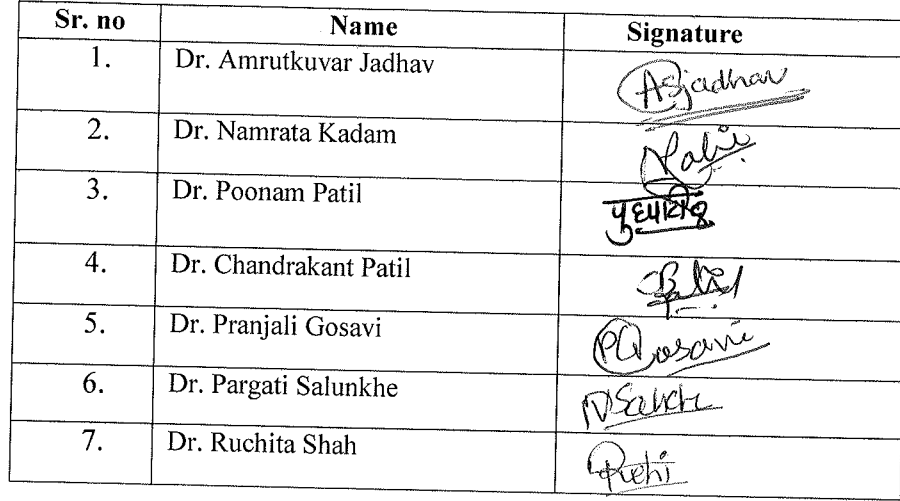 Sr. no Name Signature
1. Dr. Amrutkuvar Jadhav ASjadhav
2. Dr. Namrata Kadam
3. Dr. Poonam Patil
4. Dr. Chandrakant Patil
5. Dr. Pranjali Gosavi PGosavi
6. Dr. Pargati Salunkhe
7. Dr. Ruchita Shah